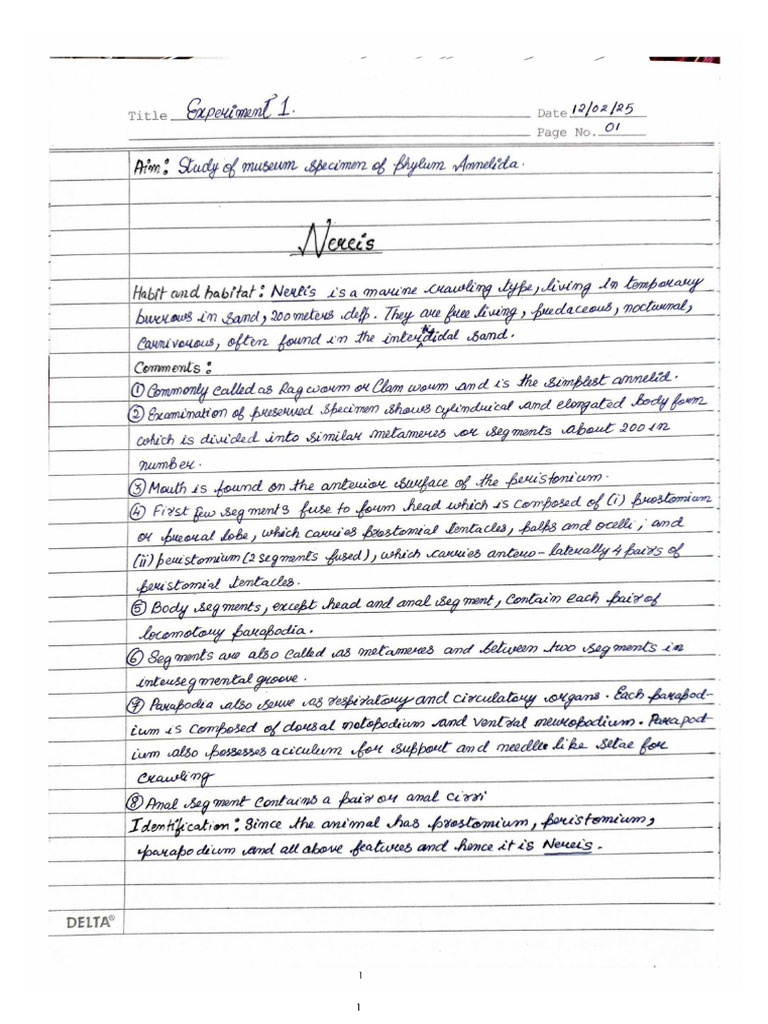 Title Experiment 1.
Date 12/02/25
Page No. 01
Aim: Study of museum specimen of phylum Annelida.
Nereis
Habit and habitat: Nereis is a marine crawling type, living in temporary
burrows in sand, 200 meters deep. They are free living, predaceous, nocturnal,
carnivorous, often found in the intertidal sand.
Comments:
① Commonly called as Rag worm or Clam worm and is the simplest annelid.
② Examination of preserved specimen shows cylindrical and elongated body form
which is divided into similar metameres or segments about 200 in
number.
③ Mouth is found on the anterior surface of the peristonium.
④ First few segments fuse to form head which is composed of (i) prostomium
or preoral lobe, which carries prostomial tentacles, palps and ocelli; and
(ii) peristomium (2 segments fused), which carries antero-laterally 4 pairs of
peristomial tentacles.
⑤ Body segments, except head and anal segment, contain each pair of
locomotory parapodia.
⑥ Segments are also called as metameres and between two segments in
intersegmental groove.
⑦ Parapodia also serve as respiratory and circulatory organs. Each parapod-
ium is composed of dorsal notopodium and ventral neuropodium. Parapod-
ium also possesses aciculum for support and needle like setae for
crawling
⑧ Anal segment contains a pair or anal cirri
Identification: Since the animal has prostomium, peristomium,
parapodium and all above features and hence it is Nereis.
DELTA®
1
1